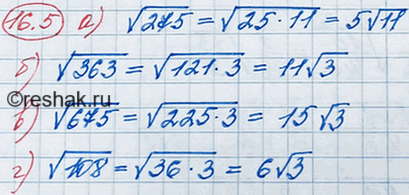 16.5 а) √275 = √25·11 = 5√11
б) √363 = √121·3 = 11√3
©reshak.ru
в) √675 = √225·3 = 15√3
г) √108 = √36·3 = 6√3